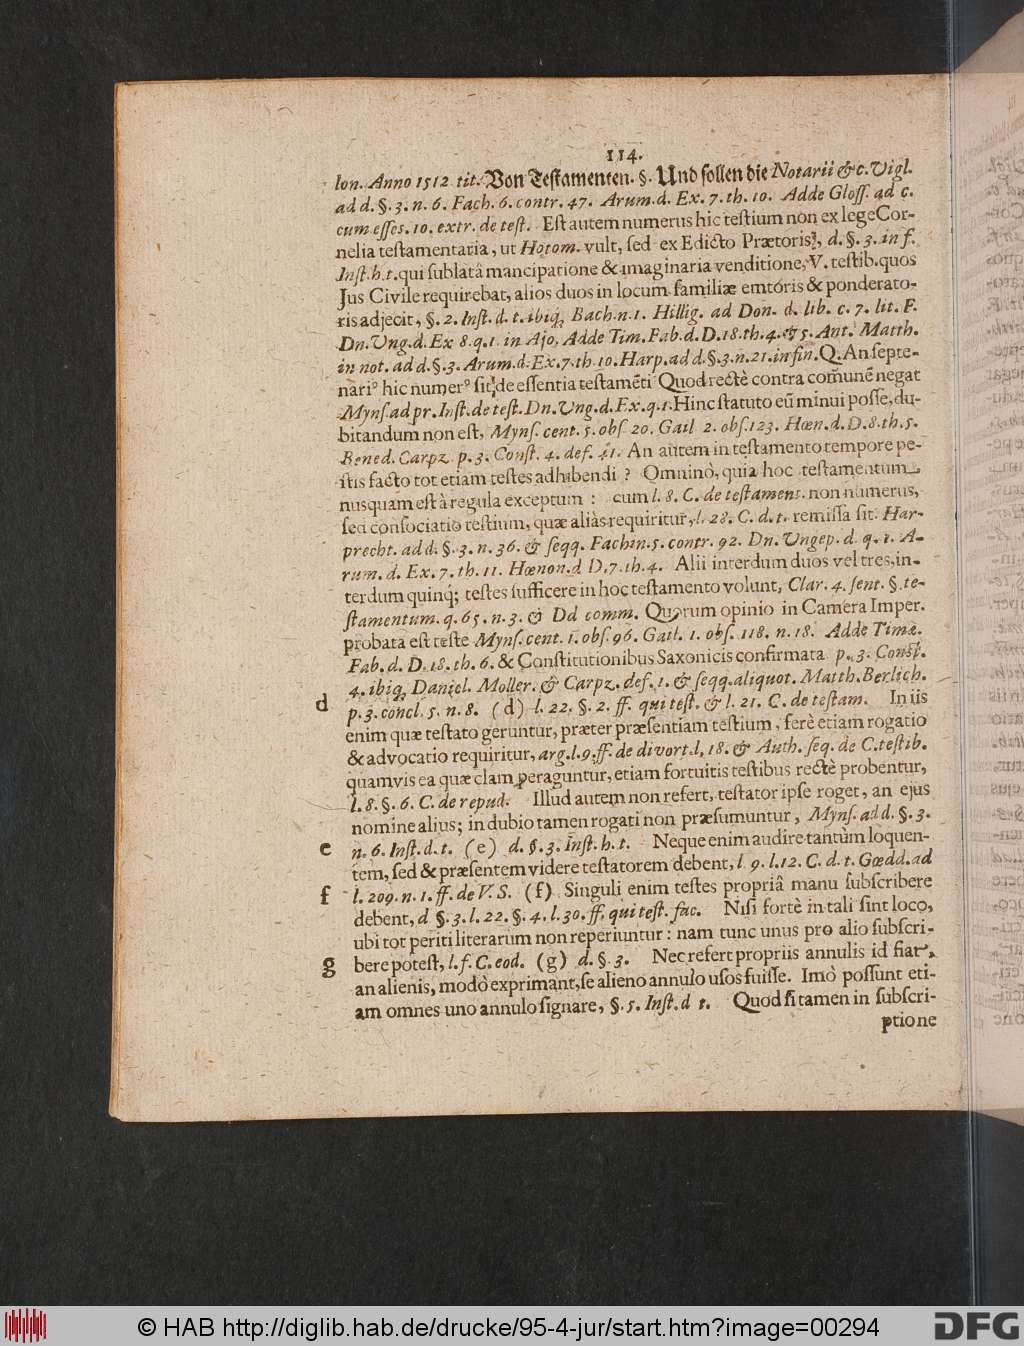 114.
lon. Anno 1512 tit. Von Testamenten. §. Und sollen die Notarii &c. Vigl.
ad d. §. 3. n. 6. Fach. 6. contr. 47. Arum. d. Ex. 7. th. 10. Adde Gloss. ad c.
cum esses. 10. extr. de test. Est autem numerus hic testium non ex lege Cor-
nelia testamentaria, ut Hotom. vult, sed ex Edicto Prætoris, d. §. 3. in f.
Inst. h. t. qui sublatâ mancipatione & imaginaria venditione, V. testib. quos
Jus Civile requirebat, alios duos in locum familiæ emtoris & ponderato-
ris adjecit, §. 2. Inst. d. t. ibiq; Bach. n. 1. Hillig. ad Don. d. lib. c. 7. lit. F.
Dn. Ung. d. Ex 8. q. 1. in Ajo, Adde Tim. Fab. d. D. 18. th. 4. & 5. Ant. Matth.
in not. ad d. §. 3. Arum. d. Ex. 7. th. 10. Harp. ad d. §. 3. n. 21. in fin. Q. An septe-
nari⁹ hic numer⁹ sit de essentia testamẽti Quod rectè contra com̃unẽ negat
Myns. ad pr. Inst. de test. Dn. Ung. d. Ex. q. 1. Hinc statuto eũ minui posse, du-
bitandum non est, Myns. cent. 5. obs. 20. Gail 2. obs. 123. Hœn. d. D. 8. th. 5.
Bened. Carpz. p. 3. Const. 4. def. 41. An autem in testamento tempore pe-
stis facto tot etiam testes adhibendi? Omninò, quia hoc testamentum
nusquam est à regula exceptum: cum l. 8. C. de testament. non numerus,
sed consociatio testium, quæ aliàs requiritur, l. 28. C. d. t. remissa sit. Har-
precht. ad d. §. 3. n. 36. & seqq. Fachin. 5. contr. 92. Dn. Ungep. d. q. 1. A-
rum. d. Ex. 7. th. 11. Hœnon. d D. 7. th. 4. Alii interdum duos vel tres, in-
terdum quinq; testes sufficere in hoc testamento volunt, Clar. 4. sent. §. te-
stamentum. q. 65. n. 3. & Dd comm. Quorum opinio in Camera Imper.
probata est teste Myns. cent. 1. obs. 96. Gail. 1. obs. 118. n. 18. Adde Timæ.
Fab. d. D. 18. th. 6. & Constitutionibus Saxonicis confirmata p. 3. Const.
4. ibiq; Daniel. Moller. & Carpz. def. 1. & seqq. aliquot. Matth. Berlich.
d p. 3. concl. 5. n. 8. (d) l. 22. §. 2. ff. qui test. & l. 21. C. de testam. In iis
enim quæ testato geruntur, præter præsentiam testium, ferè etiam rogatio
& advocatio requiritur, arg. l. 9. ff. de divort. l, 18. & Auth. seq. de C. testib.
quamvis ea quæ clam peraguntur, etiam fortuitis testibus rectè probentur,
l. 8. §. 6. C. de repud. Illud autem non refert, testator ipse roget, an ejus
nomine alius; in dubio tamen rogati non præsumuntur, Myns. ad d. §. 3.
e n. 6. Inst. d. t. (e) d. §. 3. Inst. h. t. Neque enim audire tantùm loquen-
tem, sed & præsentem videre testatorem debent, l 9. l. 12. C. d. t. Gœdd. ad
f l. 209. n. 1. ff. de V. S. (f) Singuli enim testes propriâ manu subscribere
debent, d §. 3. l. 22. §. 4. l. 30. ff. qui test. fac. Nisi fortè in tali sint loco,
ubi tot periti literarum non reperiuntur: nam tunc unus pro alio subscri-
g bere potest, l. f. C. eod. (g) d. §. 3. Nec refert propriis annulis id fiat,
an alienis, modò exprimant, se alieno annulo usos fuisse. Imò possunt eti-
am omnes uno annulo signare, §. 5. Inst. d t. Quod si tamen in subscri-
ptione
© HAB http://diglib.hab.de/drucke/95-4-jur/start.htm?image=00294
DFG